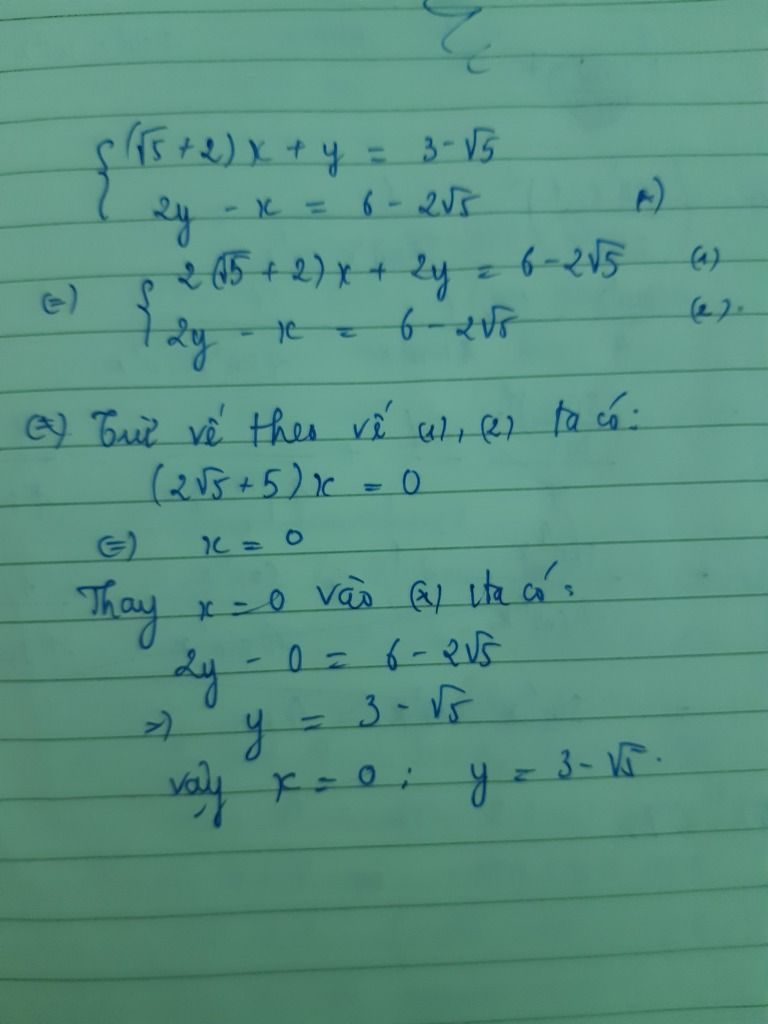 {(√5 + 2) x + y = 3 - √5
2y - x = 6 - 2√5
(=) {2(√5 + 2) x + 2y = 6 - 2√5 (1)
2y - x = 6 - 2√5 (2).
Trừ vế theo vế (1), (2) ta có:
(2√5 + 5) x = 0
(=) x = 0
Thay x = 0 vào (2) ta có:
2y - 0 = 6 - 2√5
=) y = 3 - √5
vậy x = 0 ; y = 3 - √5.